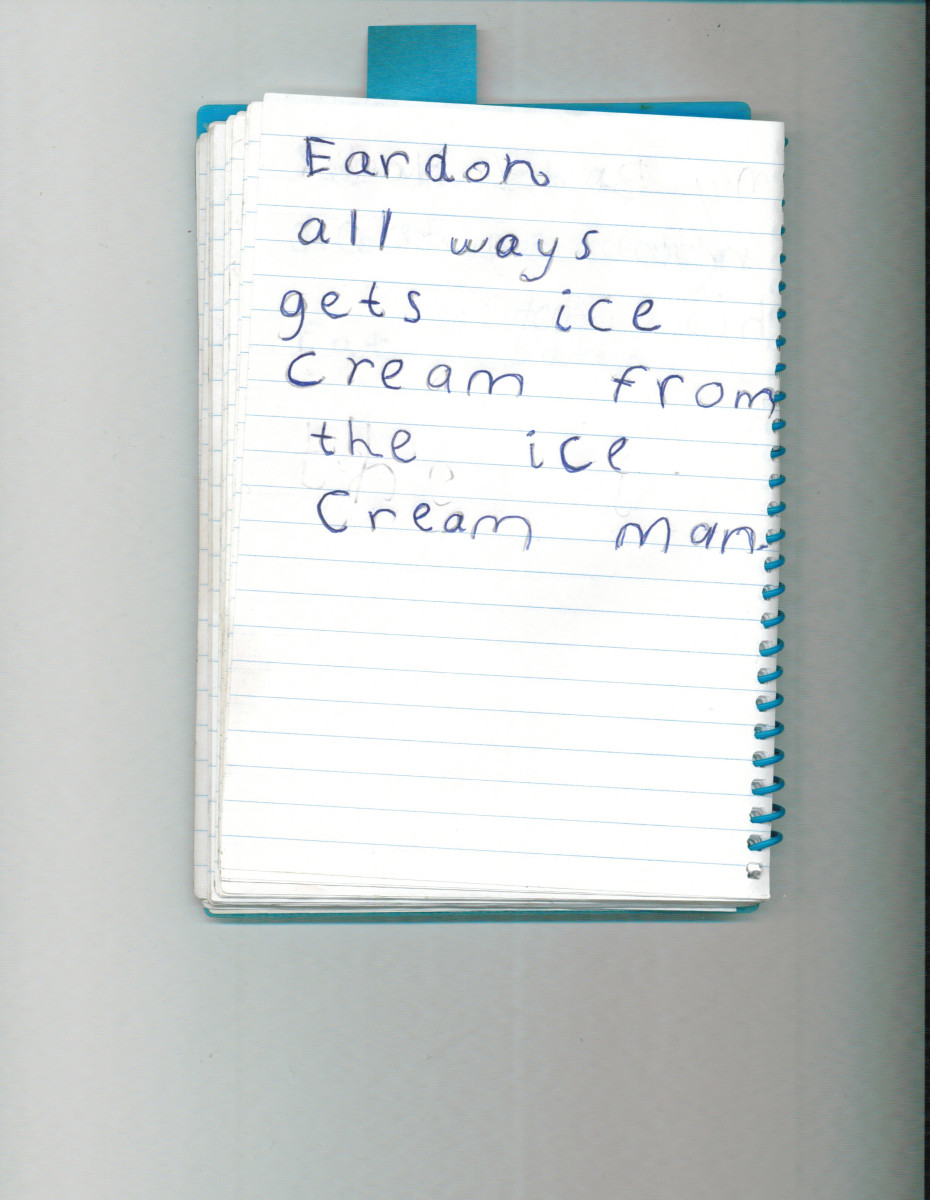 Eardon
all ways
gets ice
cream from
the ice
Cream man.